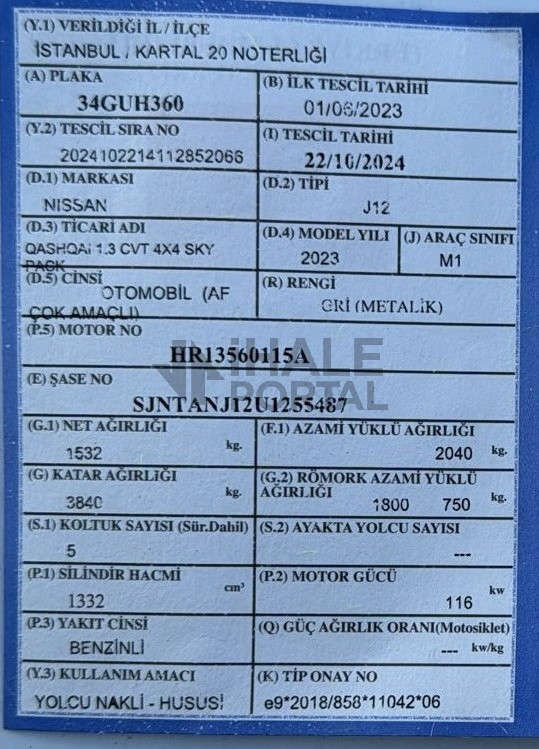 (Y.1) VERİLDİĞİ İL / İLÇE
İSTANBUL / KARTAL 20 NOTERLİĞİ
(A) PLAKA
34GUH360
(B) İLK TESCİL TARİHİ
01/06/2023
(Y.2) TESCİL SIRA NO
2024102214112852066
(I) TESCİL TARİHİ
22/10/2024
(D.1) MARKASI
NISSAN
(D.2) TİPİ
J12
(D.3) TİCARİ ADI
QASHQAI 1.3 CVT 4X4 SKY
PACK
(D.4) MODEL YILI
2023
(J) ARAÇ SINIFI
M1
(D.5) CİNSİ
OTOMOBİL (AF
ÇOK AMAÇLI)
(R) RENGİ
GRİ (METALİK)
(P.5) MOTOR NO
HR13560115A
İHALE
PORTAL
(E) ŞASE NO
SJNTANJ12U1255487
(G.1) NET AĞIRLIĞI
1532 kg.
(F.1) AZAMİ YÜKLÜ AĞIRLIĞI
2040 kg.
(G) KATAR AĞIRLIĞI
3840 kg.
(G.2) RÖMORK AZAMİ YÜKLÜ
AĞIRLIĞI
1800 750 kg.
(S.1) KOLTUK SAYISI (Sür.Dahil)
5
(S.2) AYAKTA YOLCU SAYISI
---
(P.1) SİLİNDİR HACMİ
1332 cm³
(P.2) MOTOR GÜCÜ
116 kw
(P.3) YAKIT CİNSİ
BENZİNLİ
(Q) GÜÇ AĞIRLIK ORANI(Motosiklet)
--- kw/kg
(Y.3) KULLANIM AMACI
YOLCU NAKLİ - HUSUSİ
(K) TİP ONAY NO
e9*2018/858*11042*06